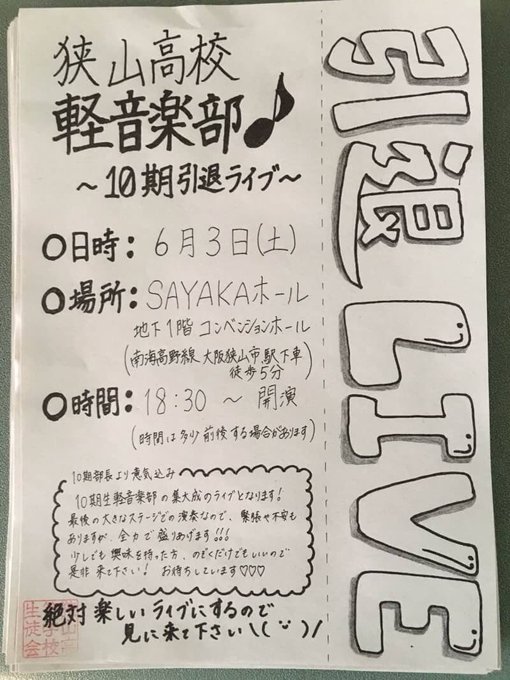 狭山高校
軽音楽部♪
～10期引退ライブ～
○日時：6月3日(土)
○場所：SAYAKAホール
地下1階 コンベンションホール
(南海高野線 大阪狭山市駅下車
徒歩5分)
○時間：18:30 ～ 開演
(時間は多少前後する場合があります)
10期部長より意気込み
10期生軽音楽部の集大成のライブとなります!
最後の大きなステージでの演奏なので、緊張や不安も
ありますが、全力で盛りあげます!!!
少しでも興味を持った方、のぞくだけでもいいので
是非来て下さい! お待ちしています♡♡♡
絶対楽しいライブにするので
見に来て下さい\(¨)/
引退LIVE
生徒会